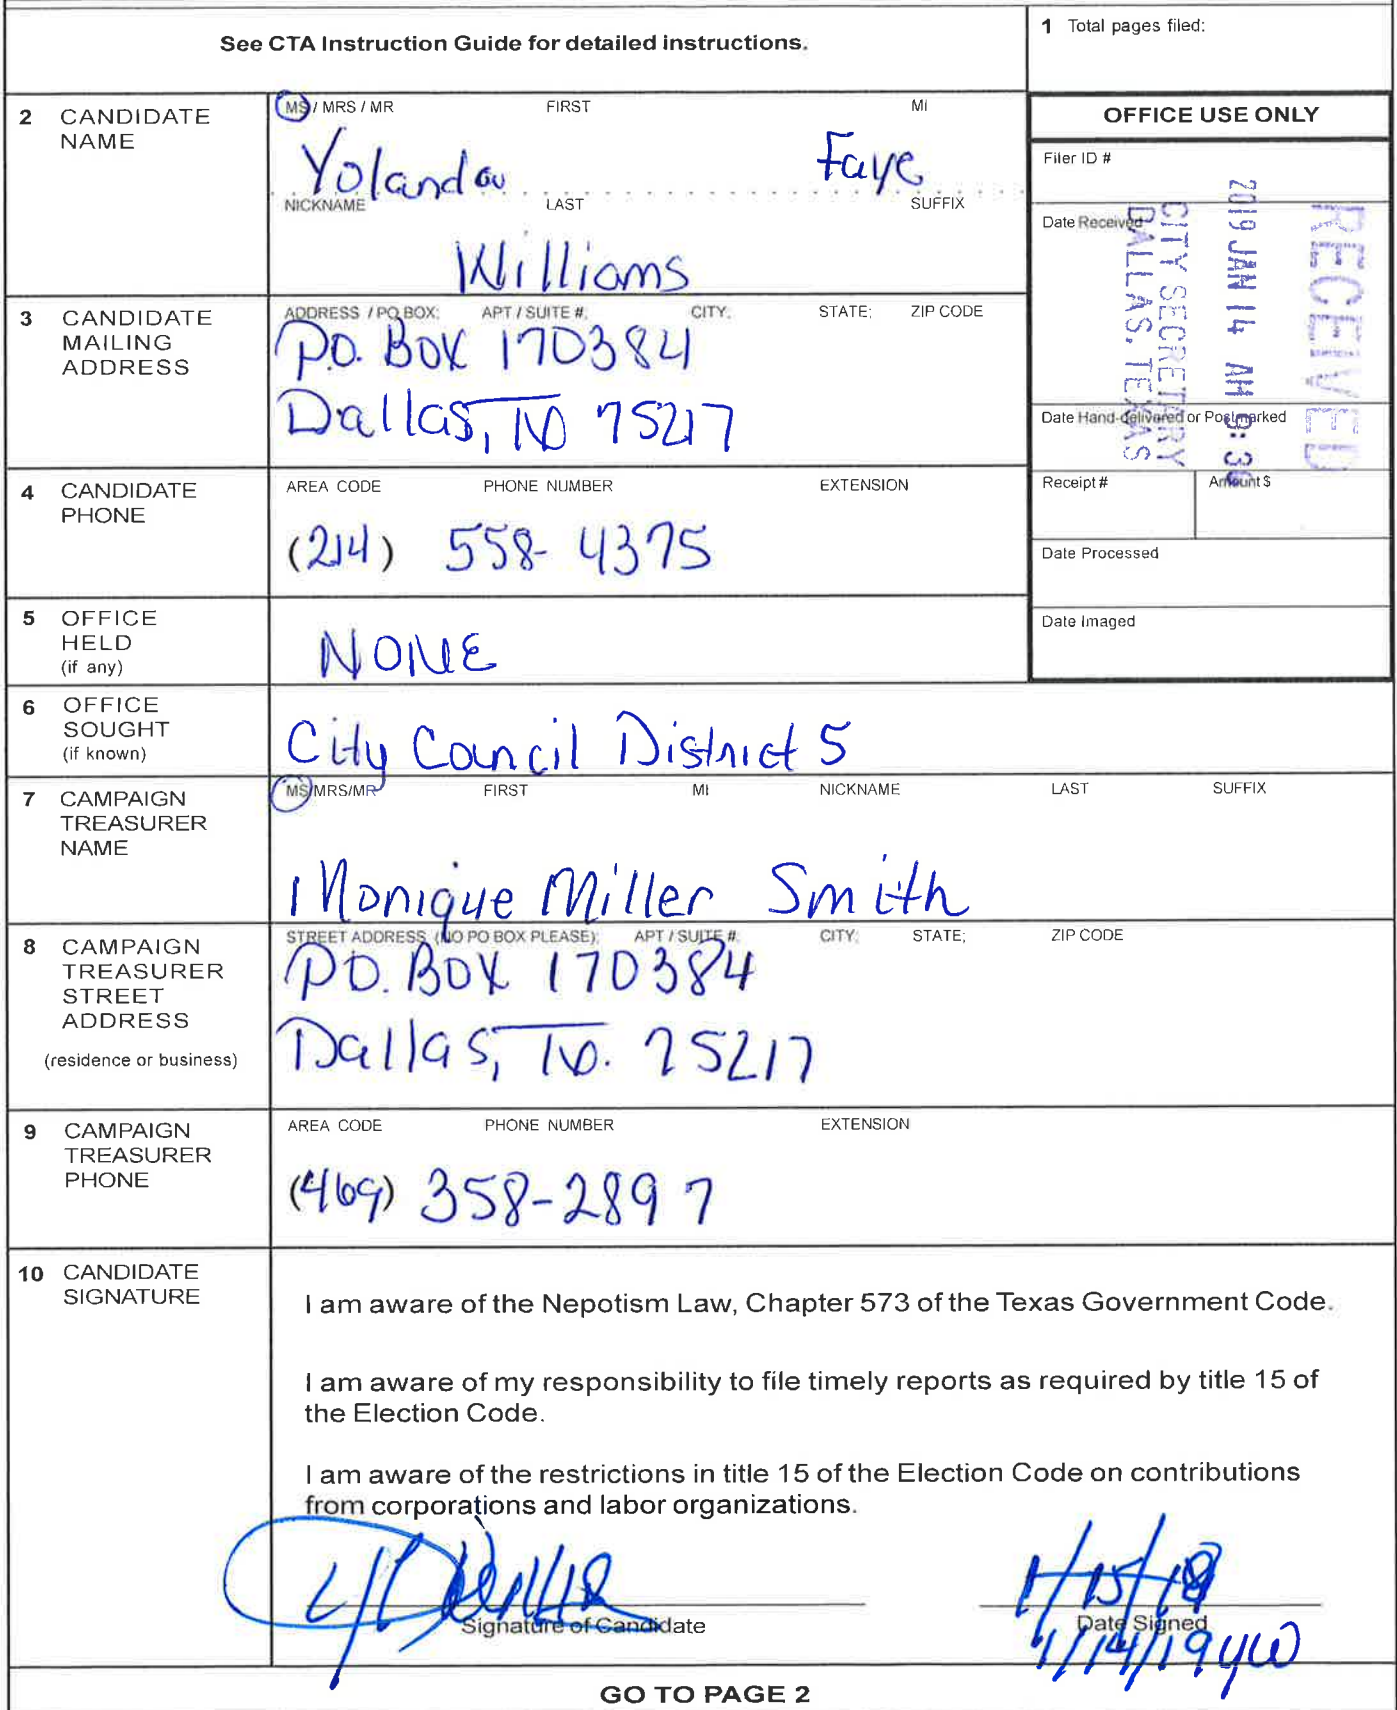 See CTA Instruction Guide for detailed instructions.
1 Total pages filed:
2 CANDIDATE NAME
MS / MRS / MR FIRST MI
Yolanda Faye
NICKNAME LAST SUFFIX
Williams
OFFICE USE ONLY
Filer ID #
Date Received
RECEIVED
2019 JAN 14 AM 9:36
CITY SECRETARY
DALLAS, TEXAS
Date Hand-delivered or Postmarked
Receipt # Amount $
Date Processed
Date Imaged
3 CANDIDATE MAILING ADDRESS
ADDRESS / PO BOX; APT / SUITE #; CITY; STATE; ZIP CODE
P.O. Box 170384
Dallas, TX 75217
4 CANDIDATE PHONE
AREA CODE PHONE NUMBER EXTENSION
(214) 558-4375
5 OFFICE HELD (if any)
NONE
6 OFFICE SOUGHT (if known)
City Council District 5
7 CAMPAIGN TREASURER NAME
MS/MRS/MR FIRST MI NICKNAME LAST SUFFIX
Monique Miller Smith
8 CAMPAIGN TREASURER STREET ADDRESS (residence or business)
STREET ADDRESS (NO PO BOX PLEASE); APT / SUITE #; CITY; STATE; ZIP CODE
P.O. Box 170384
Dallas, TX. 75217
9 CAMPAIGN TREASURER PHONE
AREA CODE PHONE NUMBER EXTENSION
(469) 358-2897
10 CANDIDATE SIGNATURE
I am aware of the Nepotism Law, Chapter 573 of the Texas Government Code.
I am aware of my responsibility to file timely reports as required by title 15 of
the Election Code.
I am aware of the restrictions in title 15 of the Election Code on contributions
from corporations and labor organizations.
1/15/18
Signature of Candidate Date Signed
1/14/19 yw
GO TO PAGE 2